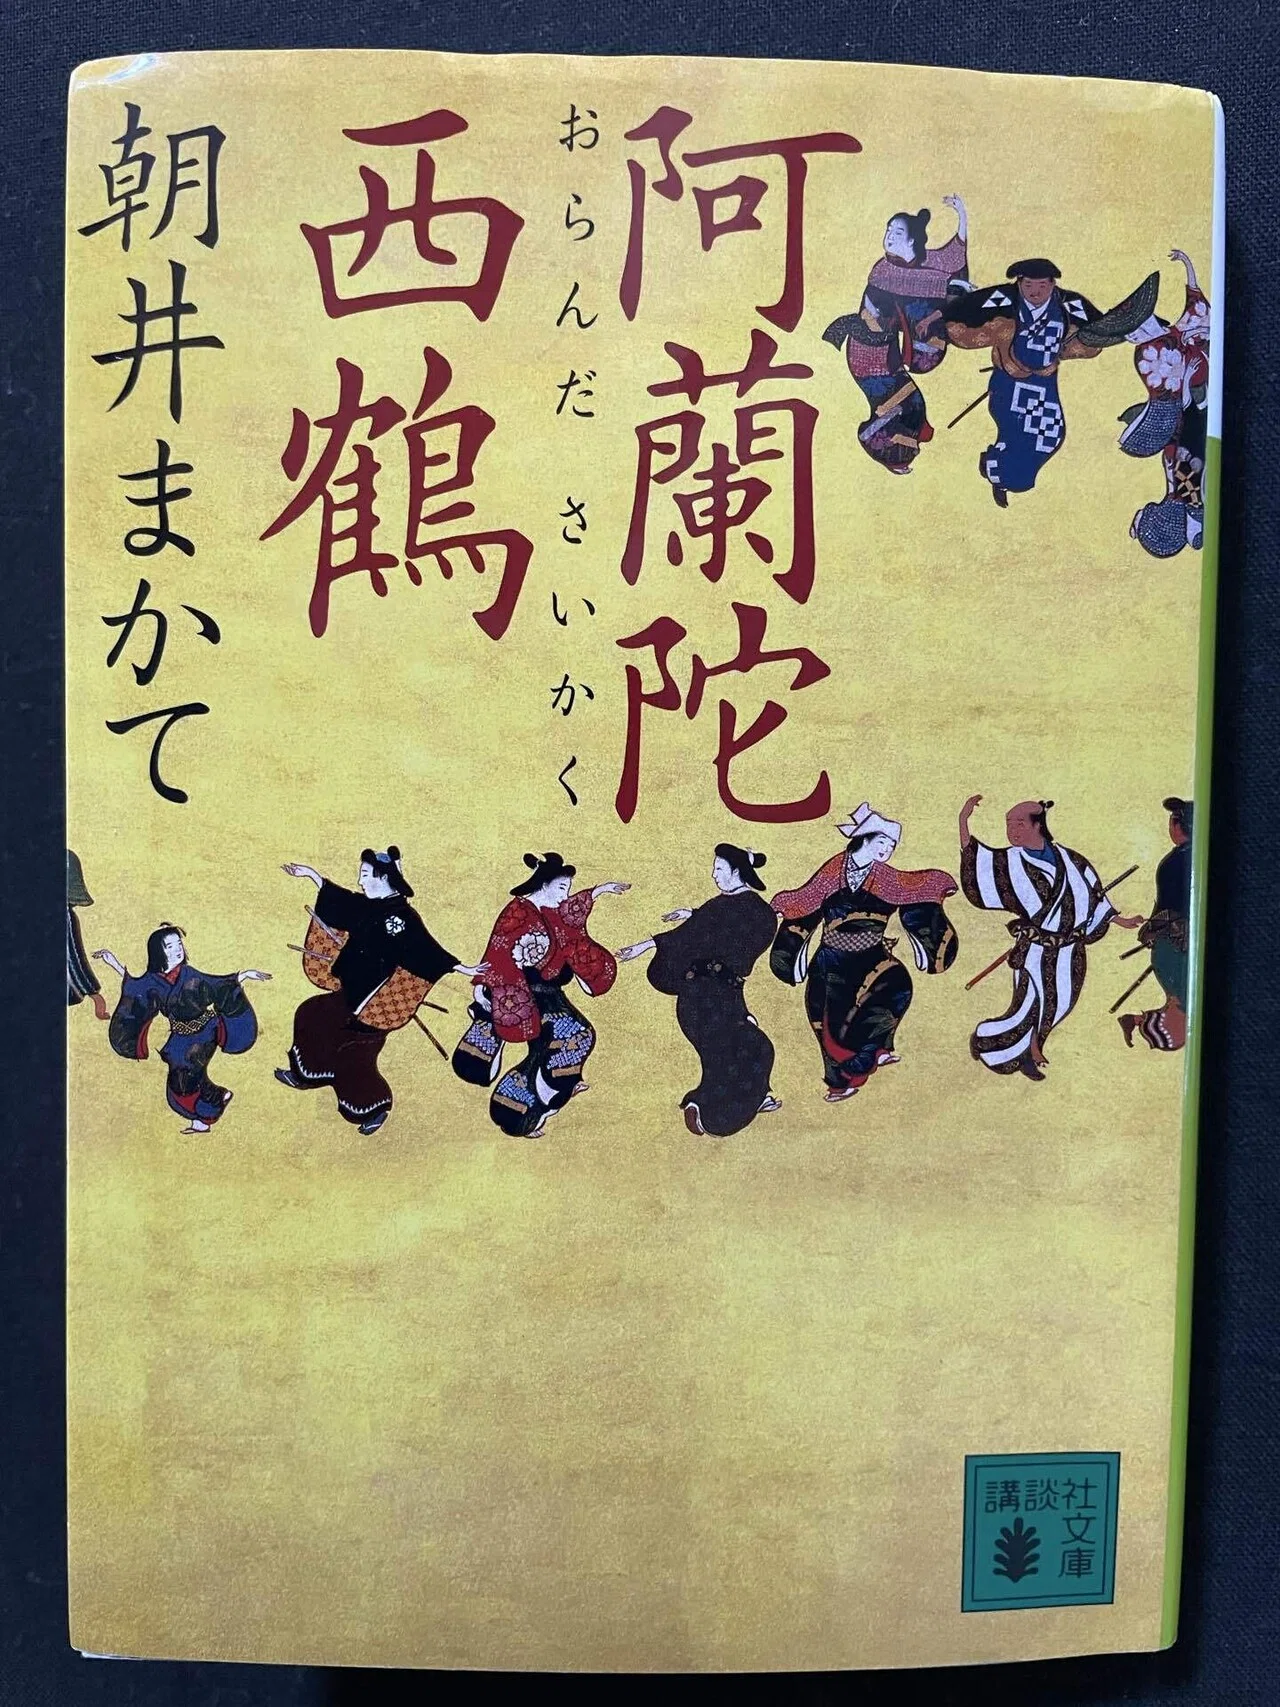 阿蘭陀
おらんだ さいかく
西鶴
朝井まかて
講談社
文庫